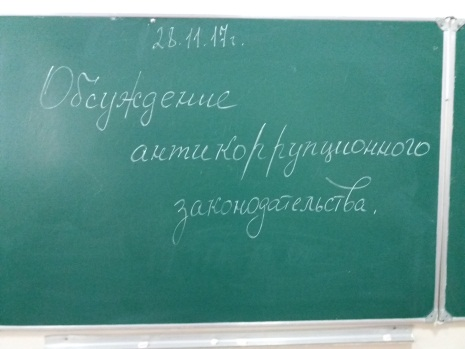 28.11.17г.
Обсуждение
антикоррупционного
законодательства.